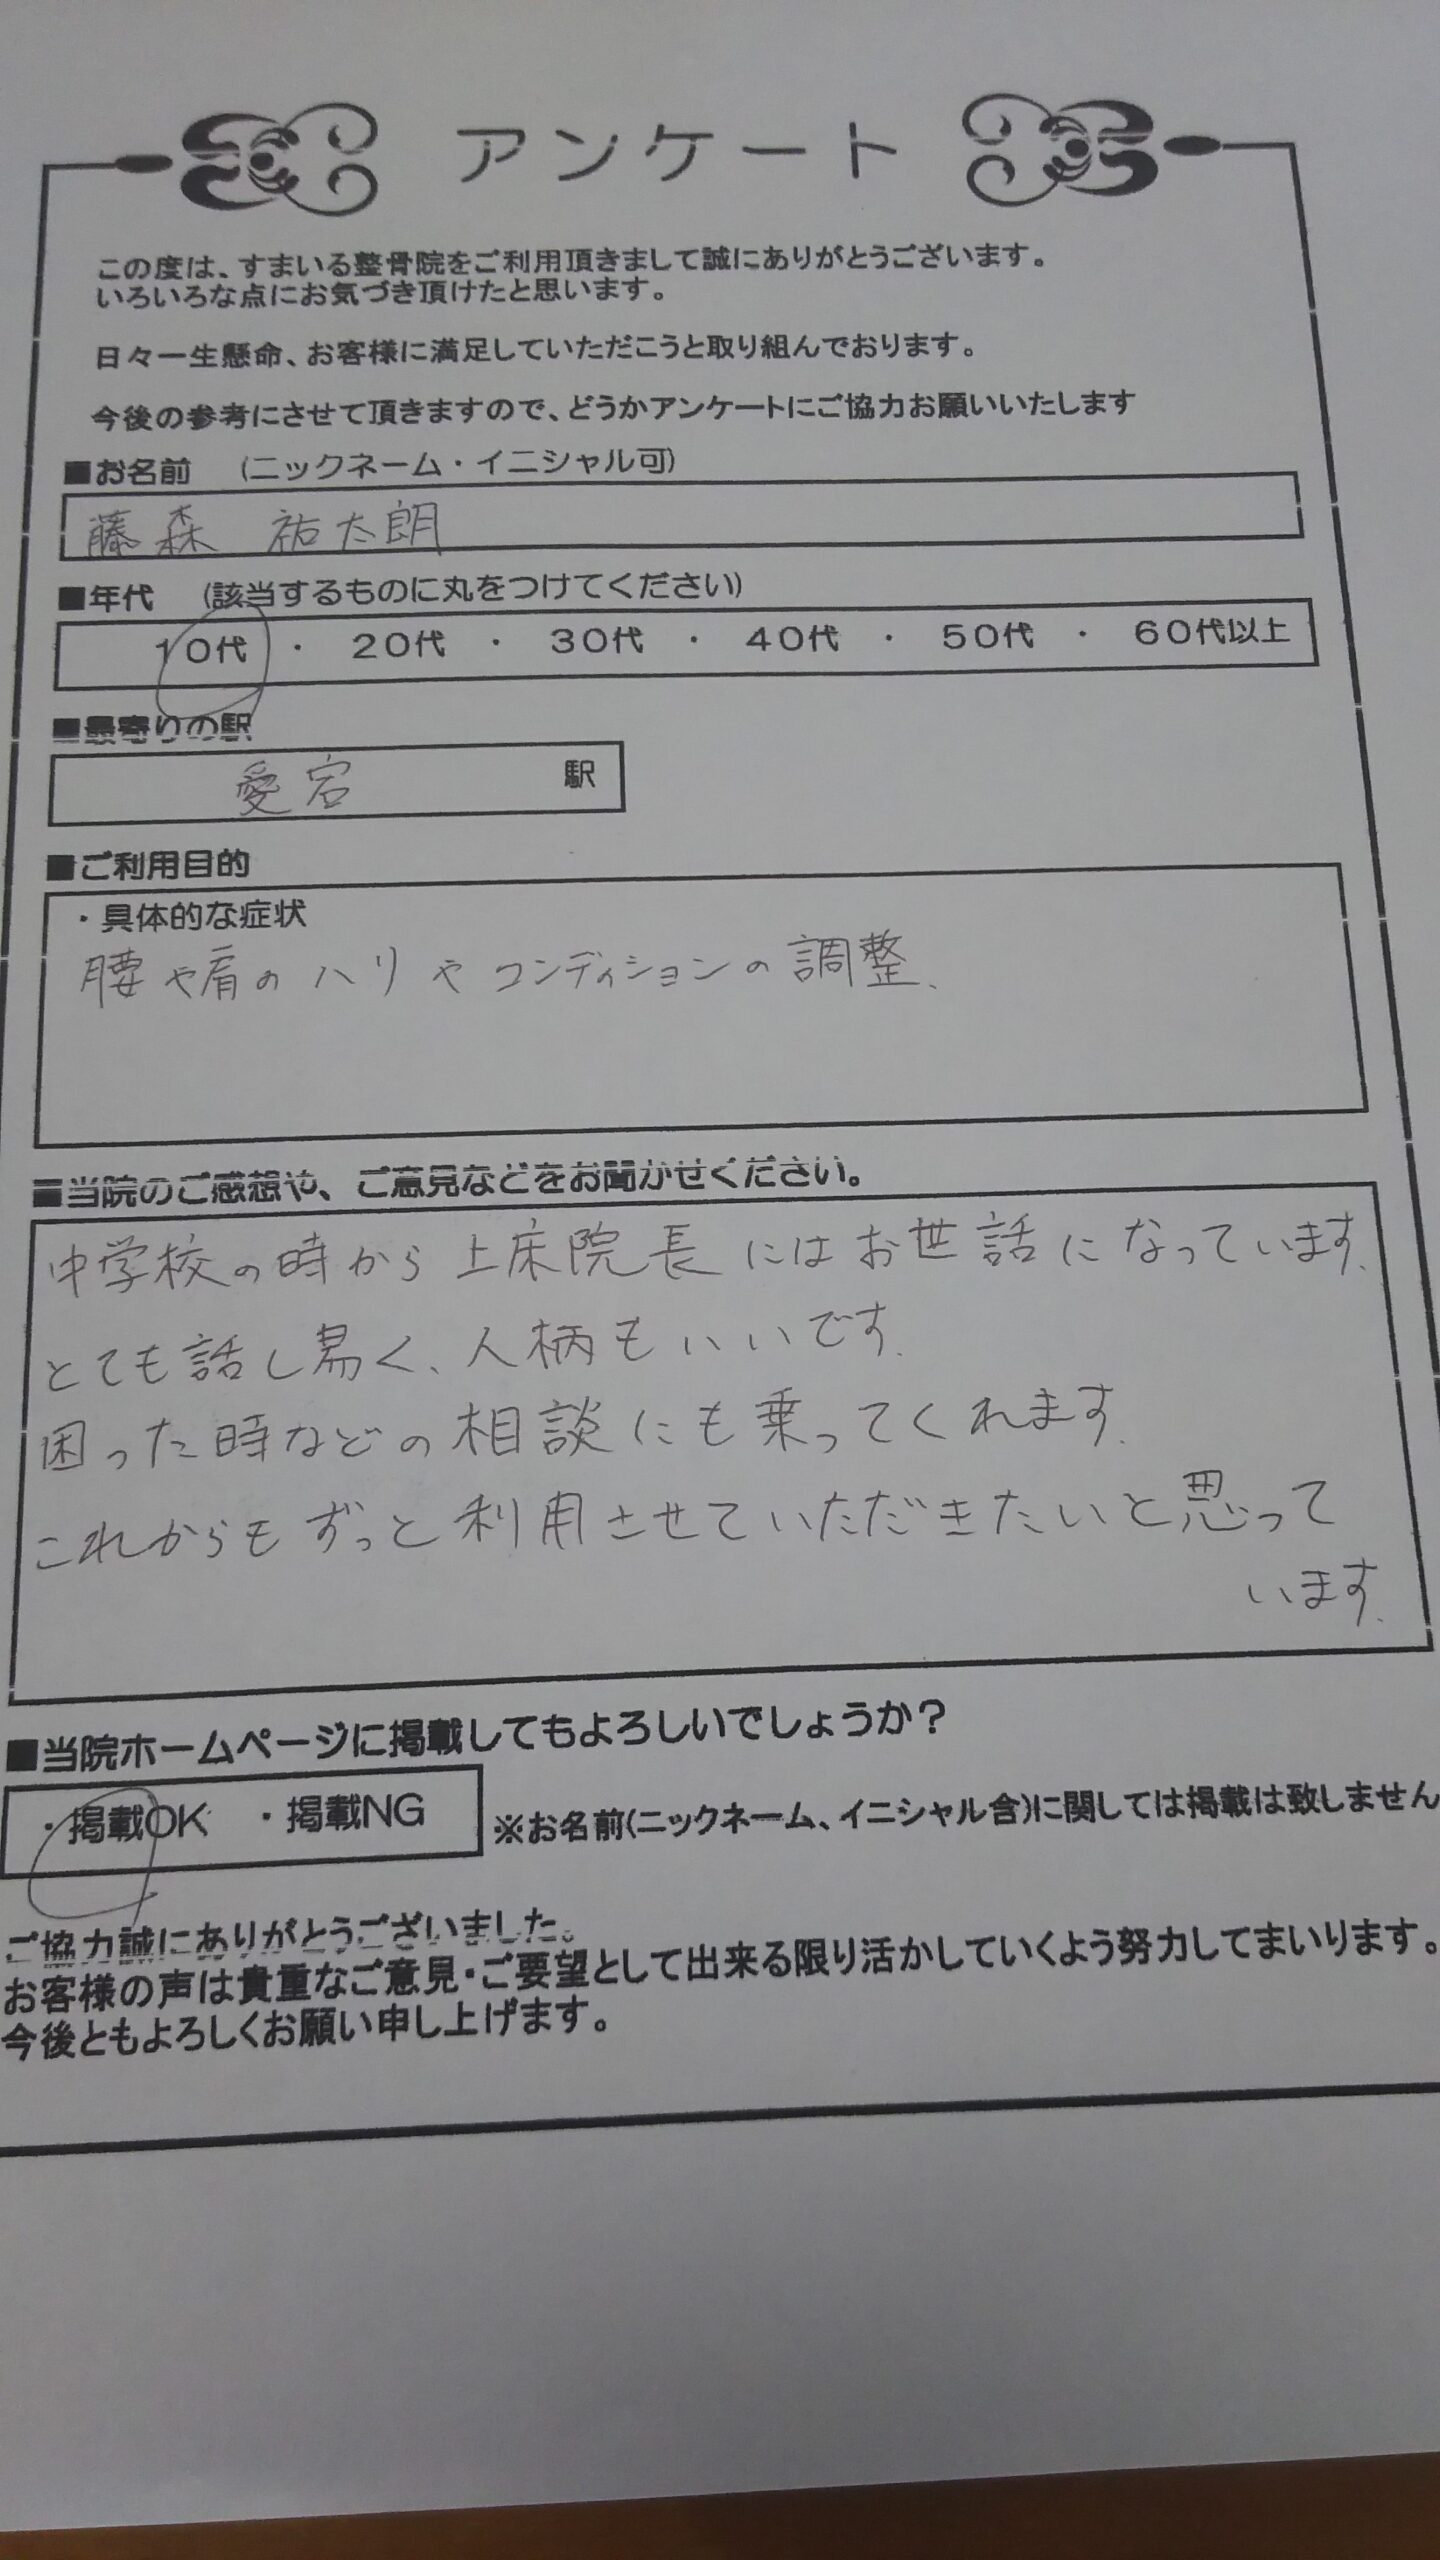 アンケート
この度は、すまいる整骨院をご利用頂きまして誠にありがとうございます。
いろいろな点にお気づき頂けたと思います。
日々一生懸命、お客様に満足していただこうと取り組んでおります。
今後の参考にさせて頂きますので、どうかアンケートにご協力お願いいたします
■お名前　(ニックネーム・イニシャル可)
藤森　祐太朗
■年代　(該当するものに丸をつけてください)
10代　・　20代　・　30代　・　40代　・　50代　・　60代以上
■最寄りの駅
愛宕　駅
■ご利用目的
・具体的な症状
腰や肩のハリやコンディションの調整.
■当院のご感想や、ご意見などをお聞かせください。
中学校の時から上床院長にはお世話になっています.
とても話し易く、人柄もいいです.
困った時などの相談にも乗ってくれます.
これからもずっと利用させていただきたいと思って
います.
■当院ホームページに掲載してもよろしいでしょうか？
・掲載OK　・掲載NG　※お名前(ニックネーム、イニシャル含)に関しては掲載は致しません
ご協力誠にありがとうございました。
お客様の声は貴重なご意見・ご要望として出来る限り活かしていくよう努力してまいります。
今後ともよろしくお願い申し上げます。